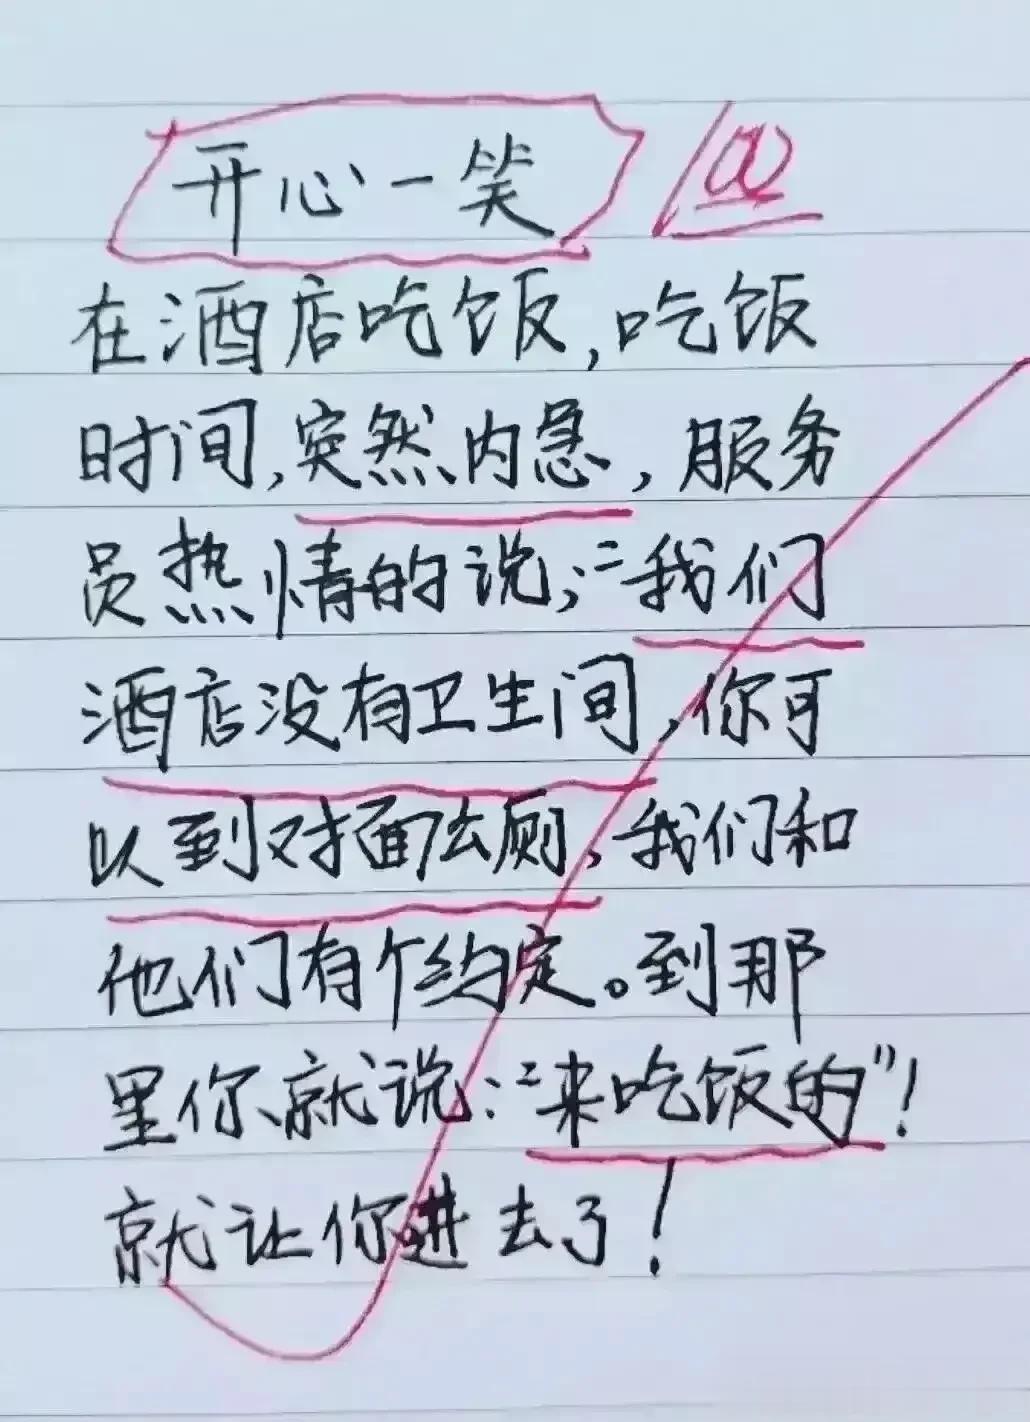 开心一笑
在酒店吃饭,吃饭
时间,突然内急,服务
员热情的说;“我们
酒店没有卫生间,你可
以到对面公厕,我们和
他们有个约定。到那
里你就说:“来吃饭的”!
就让你进去了!